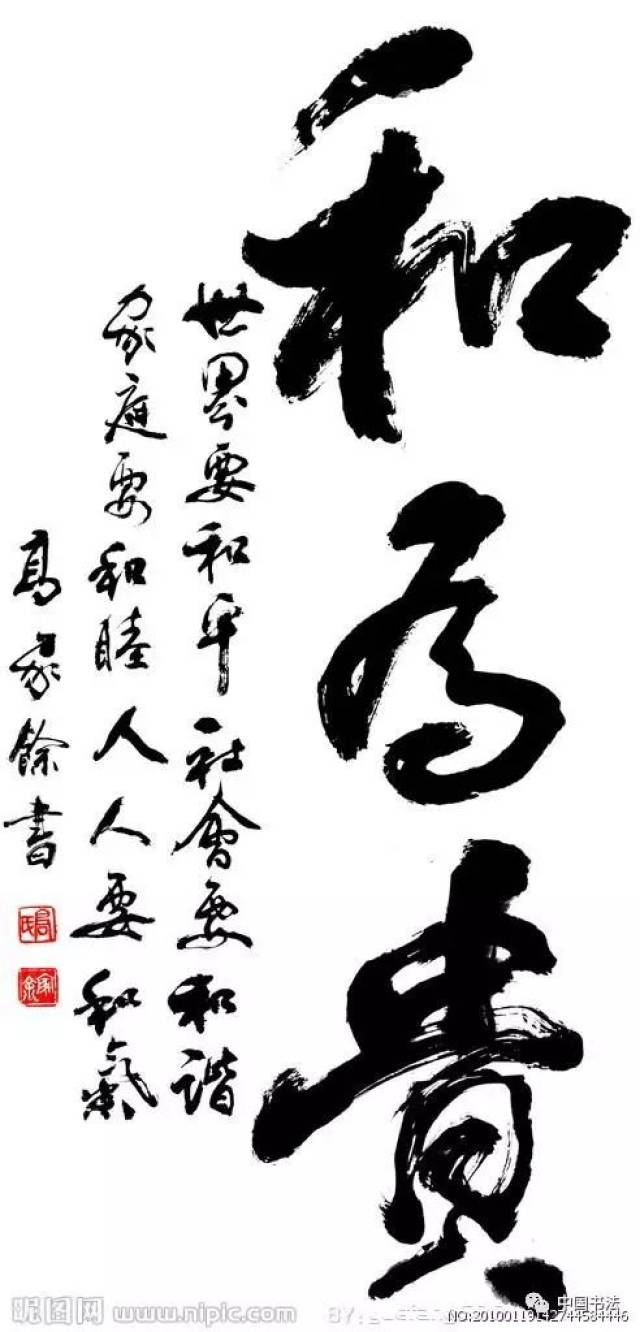 和為貴
世界要和平社會要和諧
家庭要和睦人人要和氣
高家餘書
昵图网 www.nipic.com
中国书法
NO:20100119142744584446